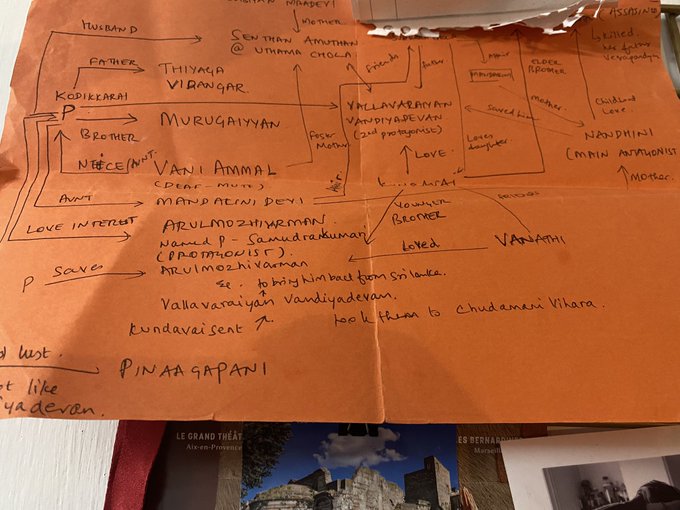 MOTHER.
(ASSASINS
HUSBAND
SENTHAN AMUTHAN
@ UTHAMA CHOLA
killed.
his father
Veerapandyan
FATHER
THIYAGA
VIDANGAR.
friends
father
affair
MANDAKINI
ELDER
BROTHER
KODIKKARAI
P
MURUGAIYYAN
VALLAVARAIYAN
VANDIYADEVAN
(2nd protagonist)
Mother.
Saved him
Childhood
Love.
BROTHER
NIECE/AUNT.
VANI AMMAL
(DEAF-MUTE)
Foster
Mother
LOVE.
Loves
daughter
NANDHINI
(MAIN ANTAGONIST
AUNT
MANDAKINI DEVI
Mother.
YOUNGER
BROTHER
FRIENDS
LOVE INTEREST
ARULMOZHIVARMAN.
named P - Samudrakumari
(PROTAGONIST).
Loved
VANATHI
P saves
Arulmozhivarman
to bring him back from Sri Lanka.
Vallavaraiyan Vandiyadevan.
Kundavai sent
took them to Chudamani Vihara.
lust.
PINAAGAPANI
like
LE GRAND THÉÂT
Aix-en-Provence
ES BERNARDIN
Marseil